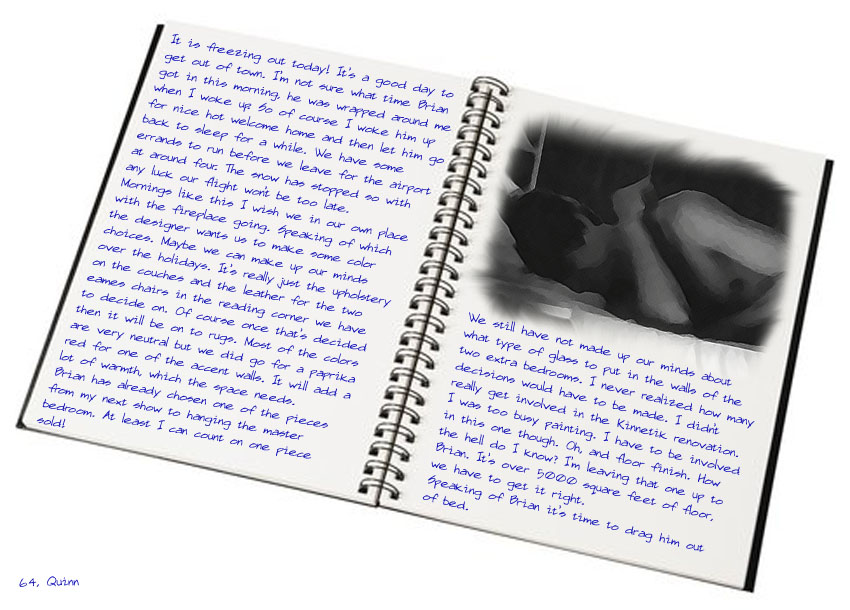 It is freezing out today! It's a good day to
get out of town. I'm not sure what time Brian
got in this morning, he was wrapped around me
when I woke up. So of course I woke him up
for nice hot welcome home and then let him go
back to sleep for a while. We have some
errands to run before we leave for the airport
at around four. The snow has stopped so with
any luck our flight won't be too late.
Mornings like this I wish we in our own place
with the fireplace going. Speaking of which
the designer wants us to make some color
choices. Maybe we can make up our minds
over the holidays. It's really just the upholstery
on the couches and the leather for the two
eames chairs in the reading corner we have
to decide on. Of course once that's decided
then it will be on to rugs. Most of the colors
are very neutral but we did go for a paprika
red for one of the accent walls. It will add a
lot of warmth, which the space needs.
Brian has already chosen one of the pieces
from my next show to hanging the master
bedroom. At least I can count on one piece
sold!
We still have not made up our minds about
what type of glass to put in the walls of the
two extra bedrooms. I never realized how many
decisions would have to be made. I didn't
really get involved in the Kinnetik renovation.
I was too busy painting. I have to be involved
in this one though. Oh, and floor finish. How
the hell do I know? I'm leaving that one up to
Brian. It's over 5000 square feet of floor,
we have to get it right.
Speaking of Brian it's time to drag him out
of bed.
64, Quinn